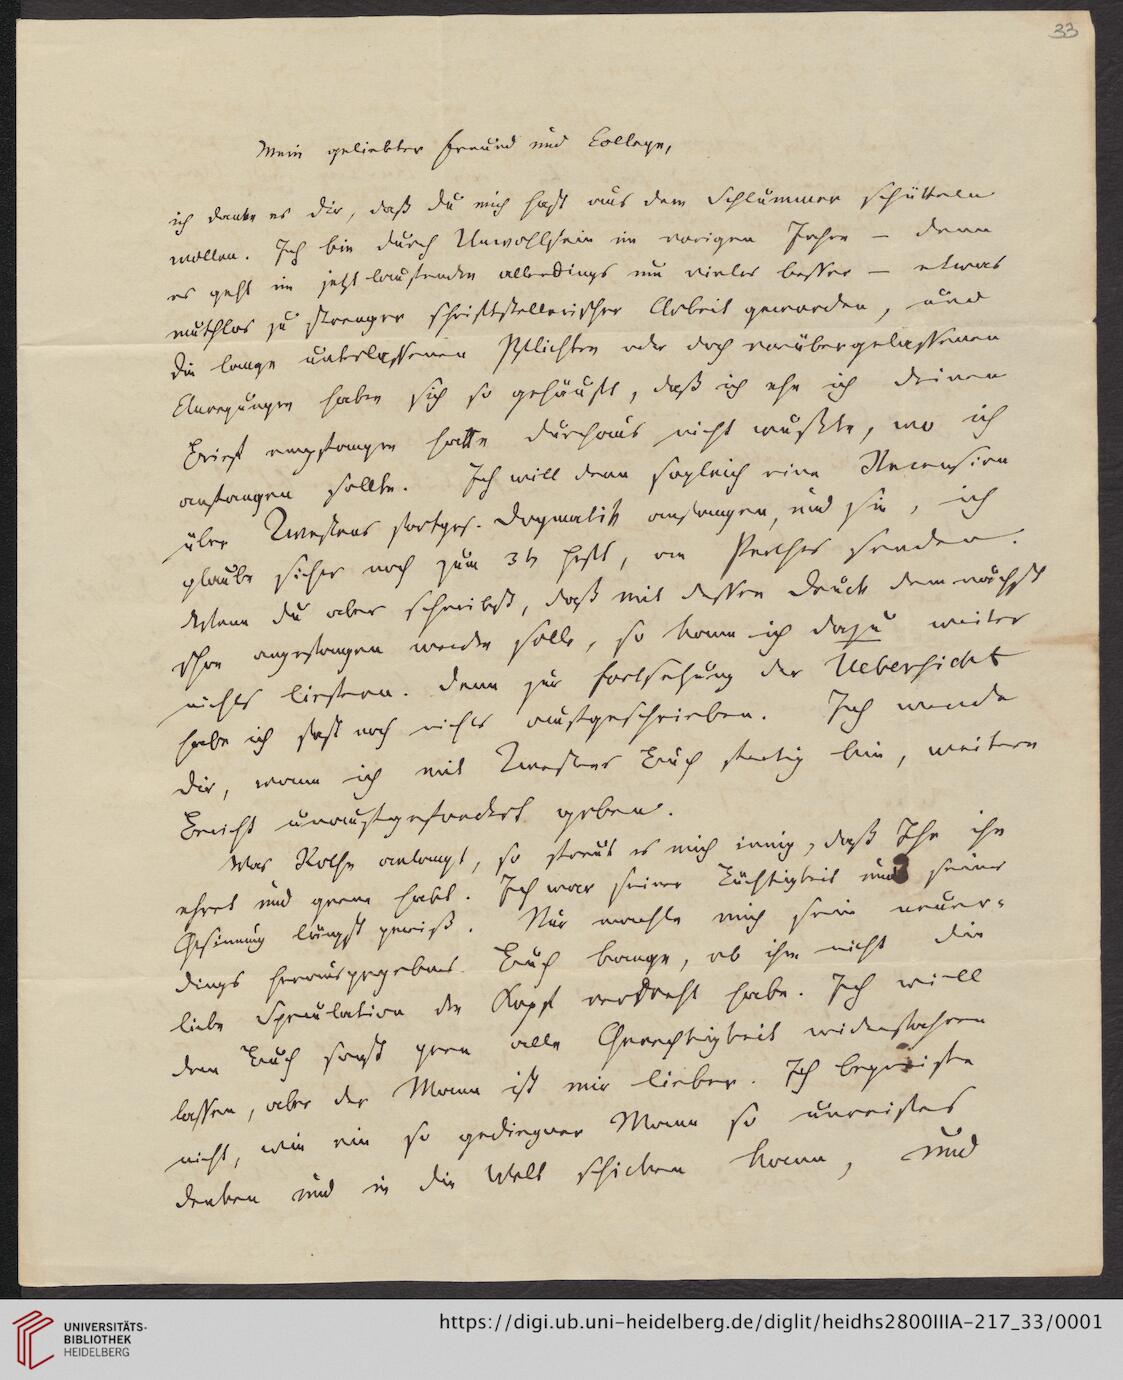 33
Mein geliebter Freund und College,
ich danke es dir, daß du mich hast aus dem Schlummer schütteln
wollen. Ich bin durch Unwohlsein im vorigen Jahre – denn
es geht im jetzt laufenden allerdings um vieles besser – etwas
muthlos zu strenger schriftstellerischer Arbeit geworden, und
die lange unterlassenen Pflichten oder doch vorübergelassenen
Anregungen haben sich so gehäuft, daß ich ehe ich deinen
Brief empfangen hatte durchaus nicht wußte, wo ich
anfangen sollte. Ich will denn sogleich eine Recension
über Twestens fortges. Dogmatik anfangen, und sie, ich
glaube sicher noch zum 3t Heft, an Perthes senden.
Wenn du aber schreibst, daß mit dessen Druck demnächst
schon angefangen werden solle, so kann ich dazu weiter
nichts liefern. Denn zur Fortsetzung der Uebersicht
habe ich fast noch nichts aufgeschrieben. Ich werde
dir, wann ich mit Twestens Buch fertig bin, weitern
Bericht unaufgefordert geben.
Was Rothe anlangt, so freut es mich innig, daß Ihr ihn
ehret und gerne habt. Ich war seiner Tüchtigkeit und seiner
Gesinnung längst gewiß. Nur machte mich sein neuer-
dings herausgegebenes Buch bange, ob ihm nicht die
liebe Speculation den Kopf verdreht habe. Ich will
dem Buch sonst gern alle Gerechtigkeit widerfahren
lassen, aber der Mann ist mir lieber. Ich begreife
nicht, wie ein so gediegner Mann so unreifes
denken und in die Welt schicken kann, und
UNIVERSITÄTS-
BIBLIOTHEK
HEIDELBERG
https://digi.ub.uni-heidelberg.de/diglit/heidhs2800IIIA-217_33/0001